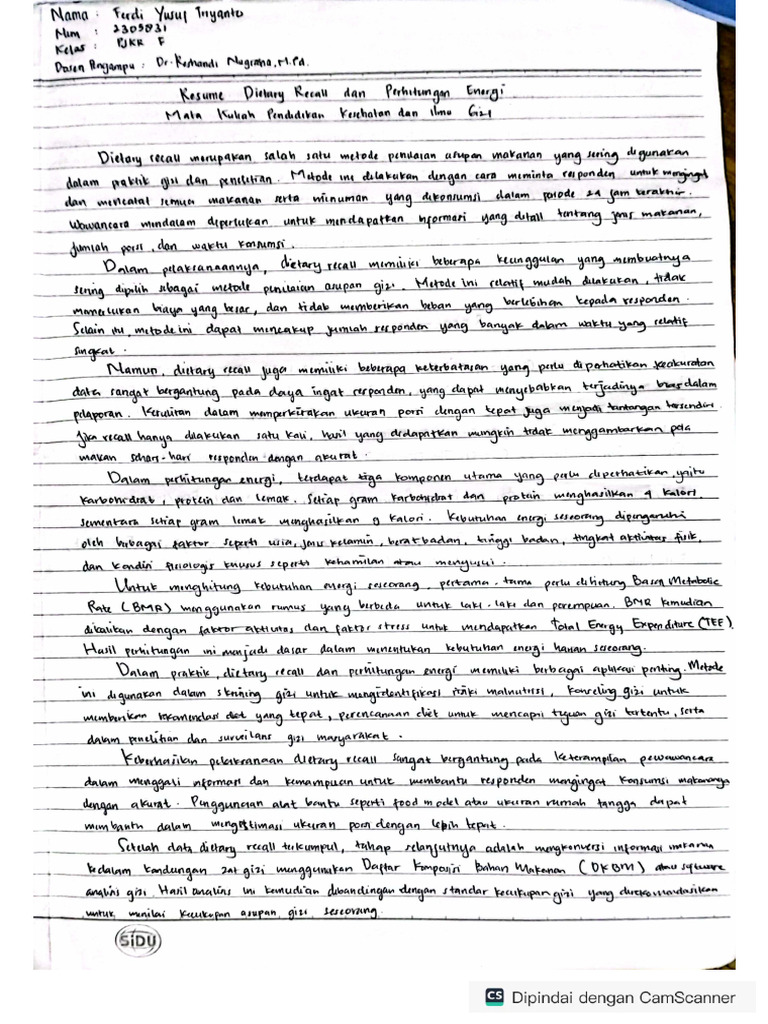 Nama : Ferdi Yusuf Triyanto
Nim : 2305831
Kelas : PJKR F
Dosen Pengampu : Dr. Reshandi Nugraha, M.Pd.
Resume Dietary Recall dan Perhitungan Energi
Mata Kuliah Pendidikan Kesehatan dan Ilmu Gizi
Dietary recall merupakan salah satu metode penilaian asupan makanan yang sering digunakan
dalam praktik gizi dan penelitian. Metode ini dilakukan dengan cara meminta responden untuk mengingat
dan mencatat semua makanan serta minuman yang dikonsumsi dalam periode 24 jam terakhir.
Wawancara mendalam diperlukan untuk mendapatkan informasi yang detail tentang jenis makanan,
jumlah porsi, dan waktu konsumsi.
Dalam pelaksanaannya, dietary recall memiliki beberapa keunggulan yang membuatnya
sering dipilih sebagai metode penilaian asupan gizi. Metode ini relatif mudah dilakukan, tidak
memerlukan biaya yang besar, dan tidak memberikan beban yang berlebihan kepada responden.
Selain itu, metode ini dapat mencakup jumlah responden yang banyak dalam waktu yang relatif
singkat.
Namun, dietary recall juga memiliki beberapa keterbatasan yang perlu diperhatikan keakuratan
data sangat bergantung pada daya ingat responden, yang dapat menyebabkan terjadinya bias dalam
pelaporan. Kesulitan dalam memperkirakan ukuran porsi dengan tepat juga menjadi tantangan tersendiri
Jika recall hanya dilakukan satu kali, hasil yang didapatkan mungkin tidak menggambarkan pola
makan sehari-hari responden dengan akurat.
Dalam perhitungan energi, terdapat tiga komponen utama yang perlu diperhatikan yaitu
karbohidrat, protein dan lemak. Setiap gram karbohidrat dan protein menghasilkan 4 kalori,
sementara setiap gram lemak menghasilkan 9 kalori. Kebutuhan energi seseorang dipengaruhi
oleh berbagai faktor seperti usia, jenis kelamin, berat badan, tinggi badan, tingkat aktivitas fisik,
dan kondisi fisiologis khusus seperti kehamilan atau menyusui.
Untuk menghitung kebutuhan energi seseorang, pertama-tama perlu dihitung Basen Metabolic
Rate (BMR) menggunakan rumus yang berbeda untuk laki-laki dan perempuan. BMR kemudian
dikalikan dengan faktor aktivitas dan faktor stress untuk mendapatkan Total Energy Expenditure (TEE).
Hasil perhitungan ini menjadi dasar dalam menentukan kebutuhan energi harian seseorang.
Dalam praktik, dietary recall dan perhitungan energi memiliki berbagai aplikasi penting. Metode
ini digunakan dalam skrining gizi untuk mengidentifikasi risiko malnutrisi, konseling gizi untuk
memberikan rekomendasi diet yang tepat, perencanaan diet untuk mencapai tujuan gizi tertentu, serta
dalam penelitian dan surveilans gizi masyarakat.
Keberhasilan pelaksanaan dietary recall sangat bergantung pada keterampilan pewawancara
dalam menggali informasi dan kemampuan untuk membantu responden mengingat konsumsi makanannya
dengan akurat. Penggunaan alat bantu seperti food model atau ukuran rumah tangga dapat
membantu dalam mengestimasi ukuran porsi dengan lebih tepat.
Setelah data dietary recall terkumpul, tahap selanjutnya adalah mengkonversi informasi makanan
kedalam kandungan zat gizi menggunakan Daftar Komposisi Bahan Makanan (DKBM) atau software
analisis gizi. Hasil analisis ini kemudian dibandingan dengan standar kecukupan gizi yang direkomendasikan
untuk menilai kecukupan asupan gizi seseorang.
SiDU
CS Dipindai dengan CamScanner